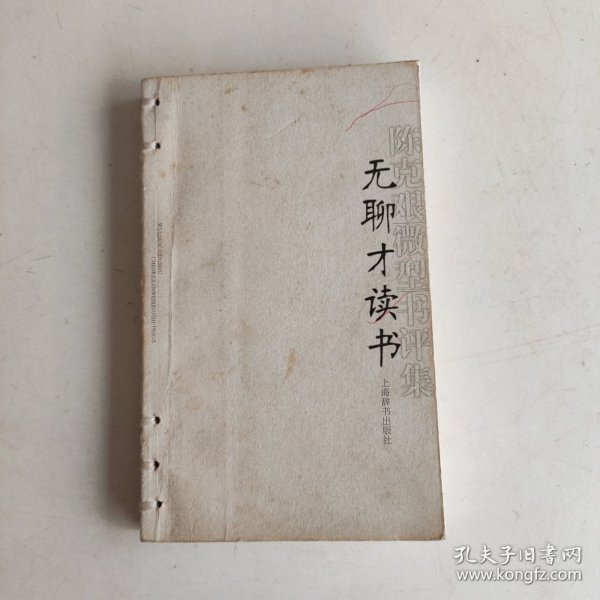 陈克艰微型书评集
无聊才读书
上海辞书出版社
WULIAOCAIDUSHU
孔夫子旧书网
www.kongfz.com